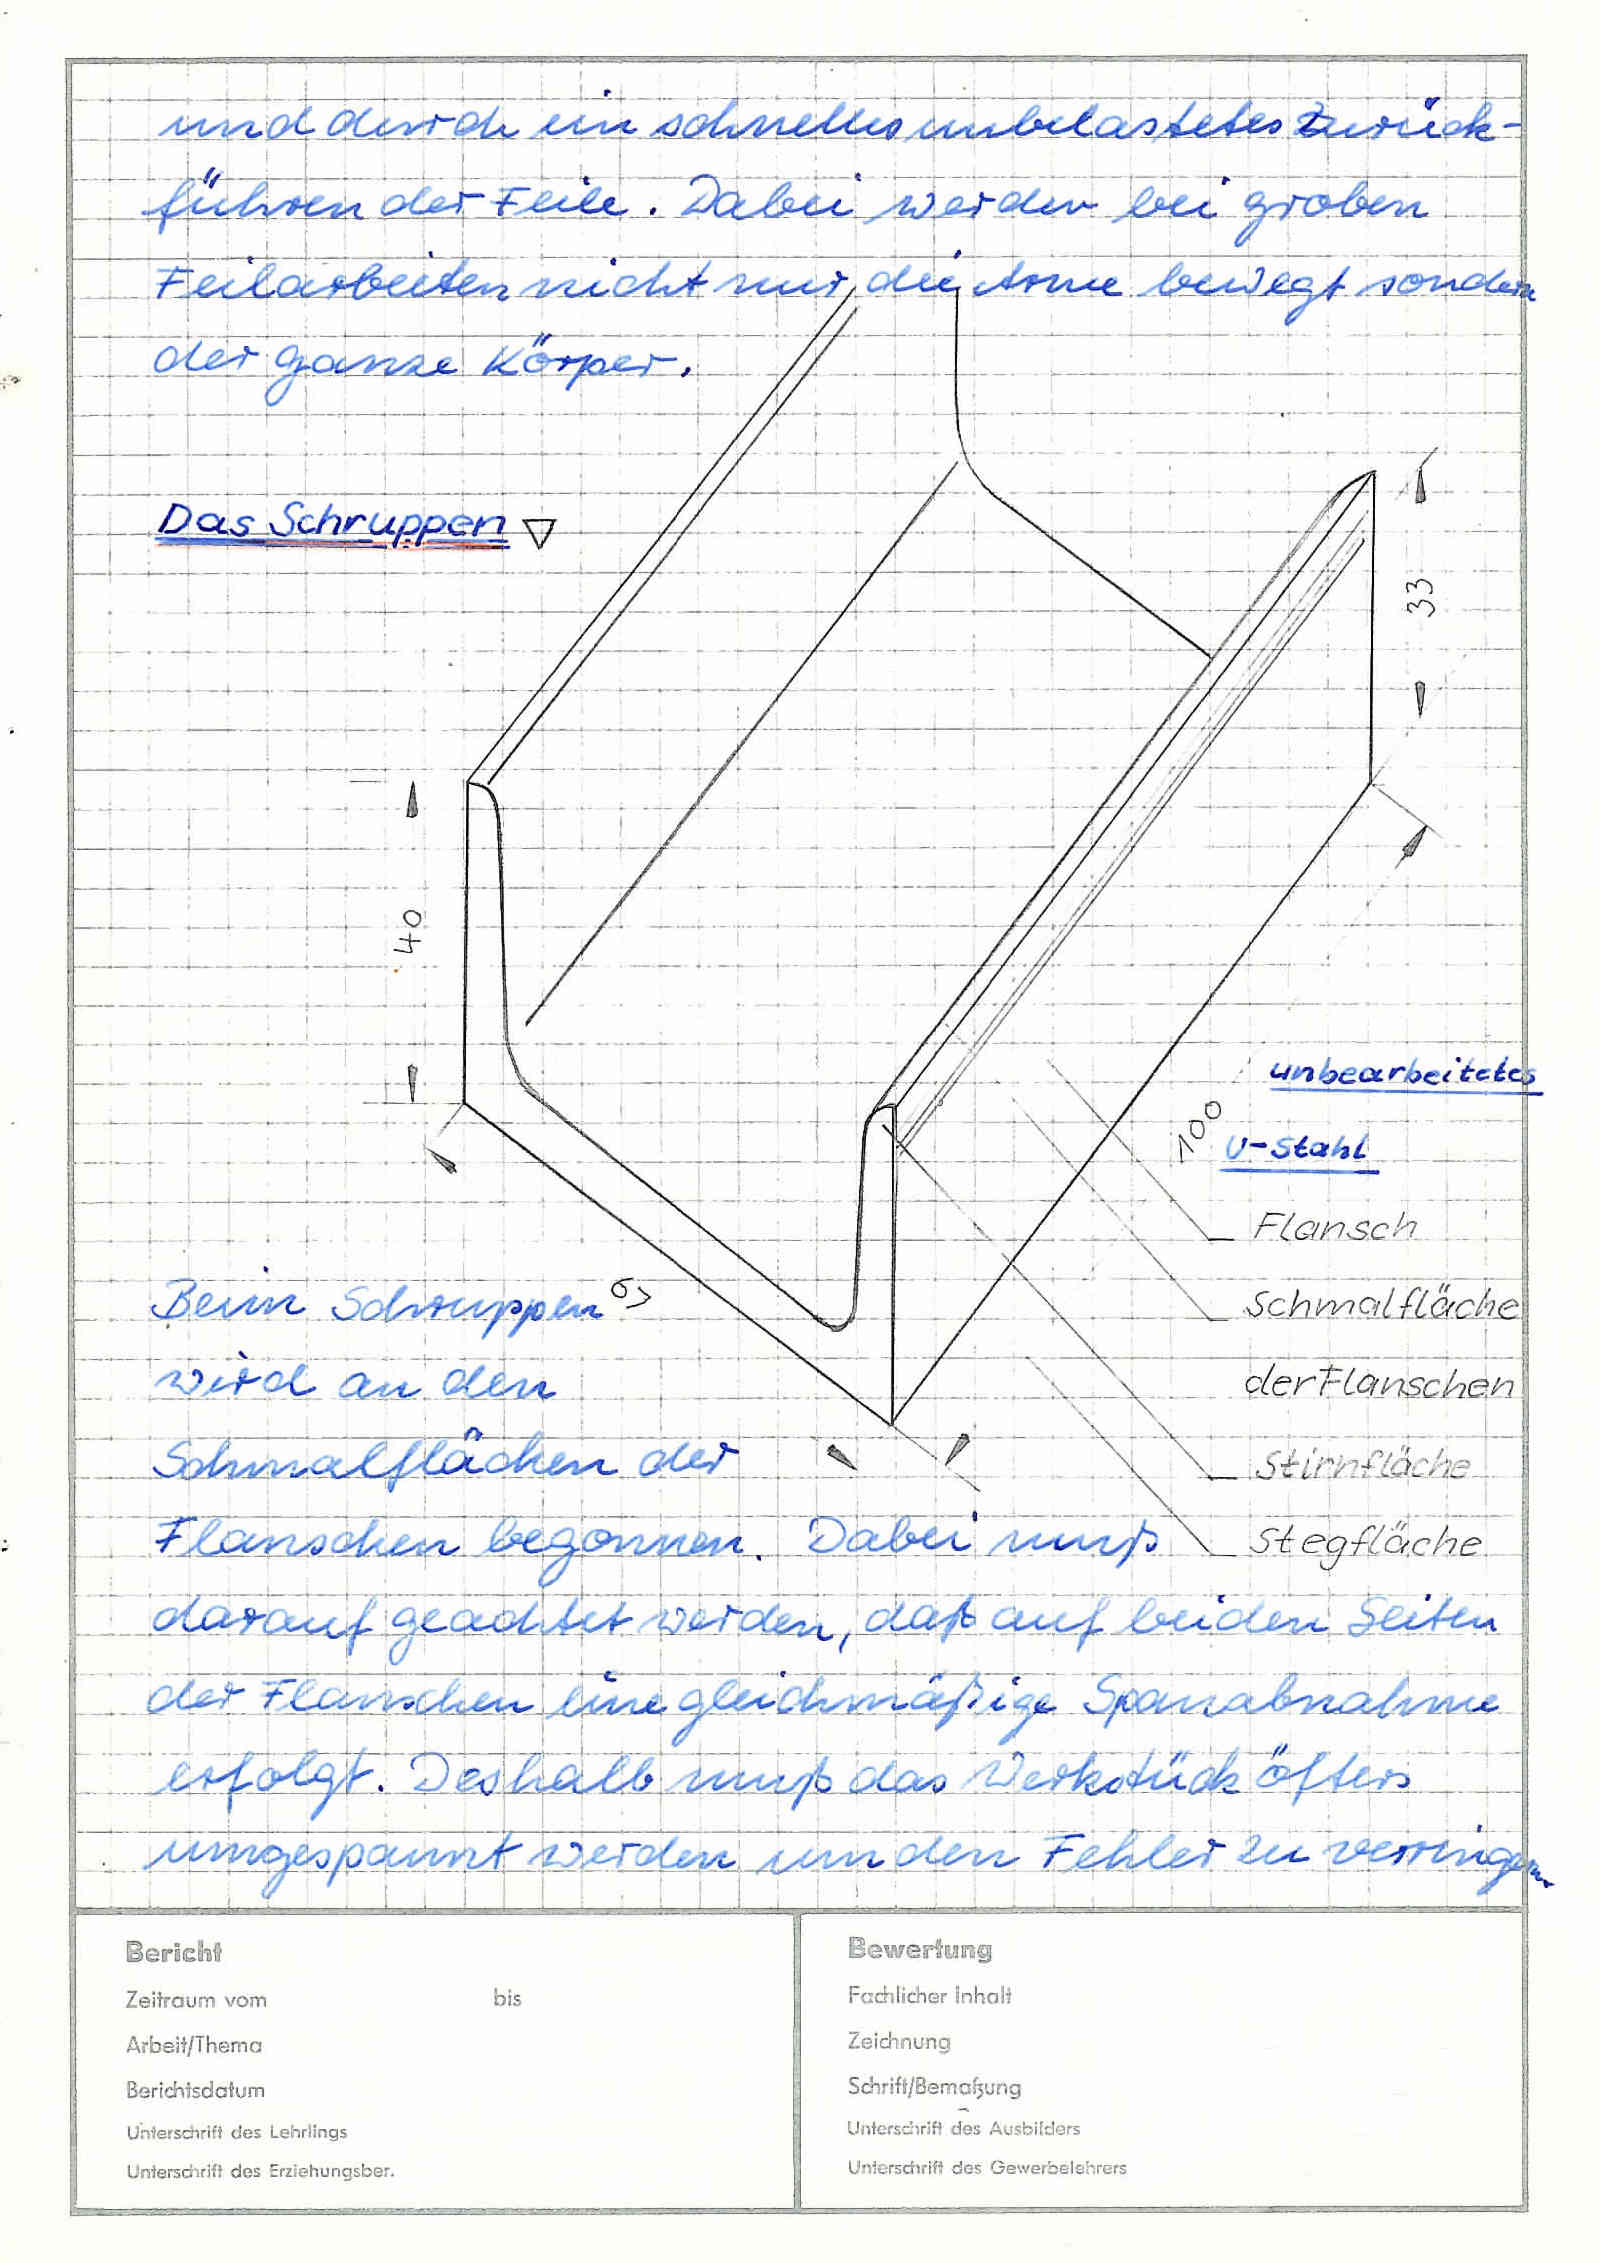 und durch ein schnelles unbelastetes Zurück-
führen der Feile. Dabei werden bei groben
Feilarbeiten nicht nur die Arme bewegt sondern
der ganze Körper.
Das Schruppen ▽
33
40
unbearbeitetes
100
U-Stahl
Flansch
Beim Schruppen
Schmalfläche
wird an den
der Flanschen
Schmalflächen der
Stirnfläche
Flanschen begonnen. Dabei muß
Stegfläche
darauf geachtet werden, daß auf beiden Seiten
der Flanschen eine gleichmäßige Spanabnahme
erfolgt. Deshalb muß das Werkstück öfters
umgespannt werden um den Fehler zu verringern
Bericht
Zeitraum vom bis
Arbeit/Thema
Berichtsdatum
Unterschrift des Lehrlings
Unterschrift des Erziehungsber.
Bewertung
Fachlicher Inhalt
Zeichnung
Schrift/Bemaßung
Unterschrift des Ausbilders
Unterschrift des Gewerbelehrers